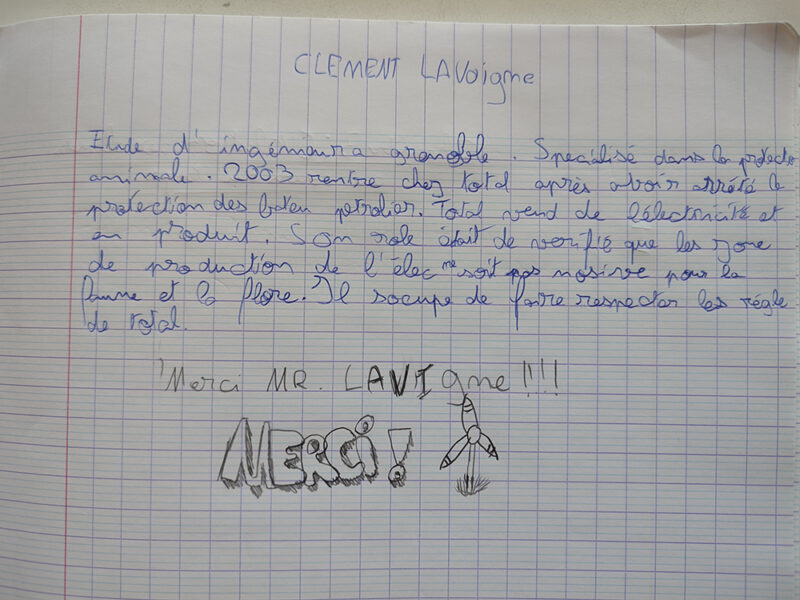 CLEMENT LAVoigne
Etude d'ingénieur a grenoble. Spécialisé dans la protectio
animale. 2003 rentre chez total après avoir arrêté la
protection des bateu petrolier. Total vend de l'électricité et
en produit. Son role était de verifié que les zone
de production de l'élec ne soit pas nosive pour la
faune et la flore. Il socupe de faire respecter les régle
de total.
Merci MR. LAVIgne!!!!
MERCI!